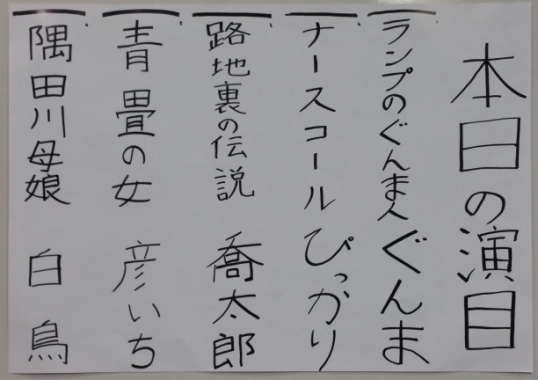 本日の演目
ランプのぐんま人 ぐんま
ナースコール ぴっかり
路地裏の伝説 喬太郎
青畳の女 彦いち
隅田川母娘 白鳥